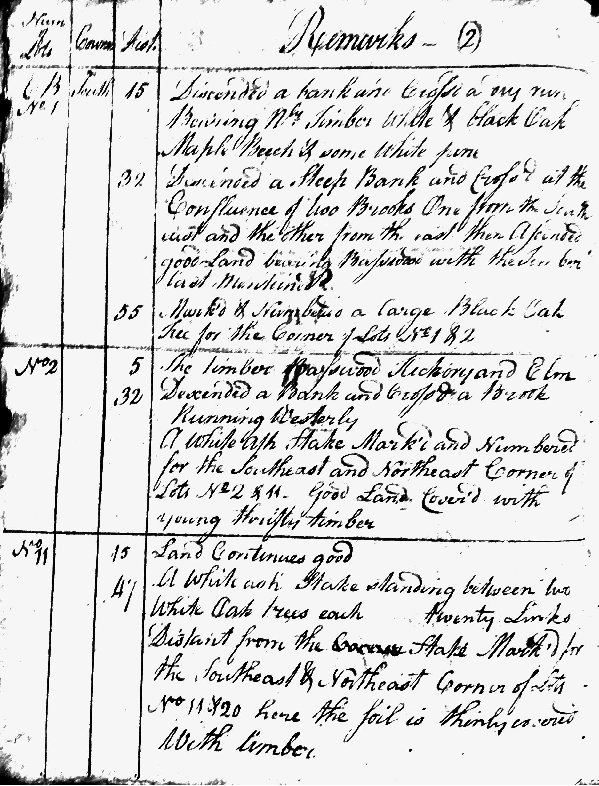 Num Lots Cours Dist. Remarks - (2)
No. 1 South 15 Descended a bank and Cross'd a run
Bearing Timber White & black Oak
Maple Beech & some White pine
32 Descended a Steep Bank and Cross'd at the
Confluence of two Brooks One from the South
and the other from the east then Ascended
good Land bearing Basswood with the timber
last Mentioned
55 Mark'd & Numbered a large Black Oak
Tree for the Corner of Lots No. 1 & 2
No 2 5 The timber Basswood Hickory and Elm
32 Descended a Bank and Cross'd a Brook
Running Westerly
A White Ash Stake Mark'd and Numbered
for the Southeast and Northeast Corner of
Lots No 2 & 11 - Good Land Cover'd with
young thrifty timber
No 11 15 Land Continues good
47 A White ash Stake standing between two
White Oak trees each twenty Links
Distant from the Stake Mark'd for
the Southeast & Northeast Corner of Lots
No 11 & 20 here the soil is thinly covered
With timber.